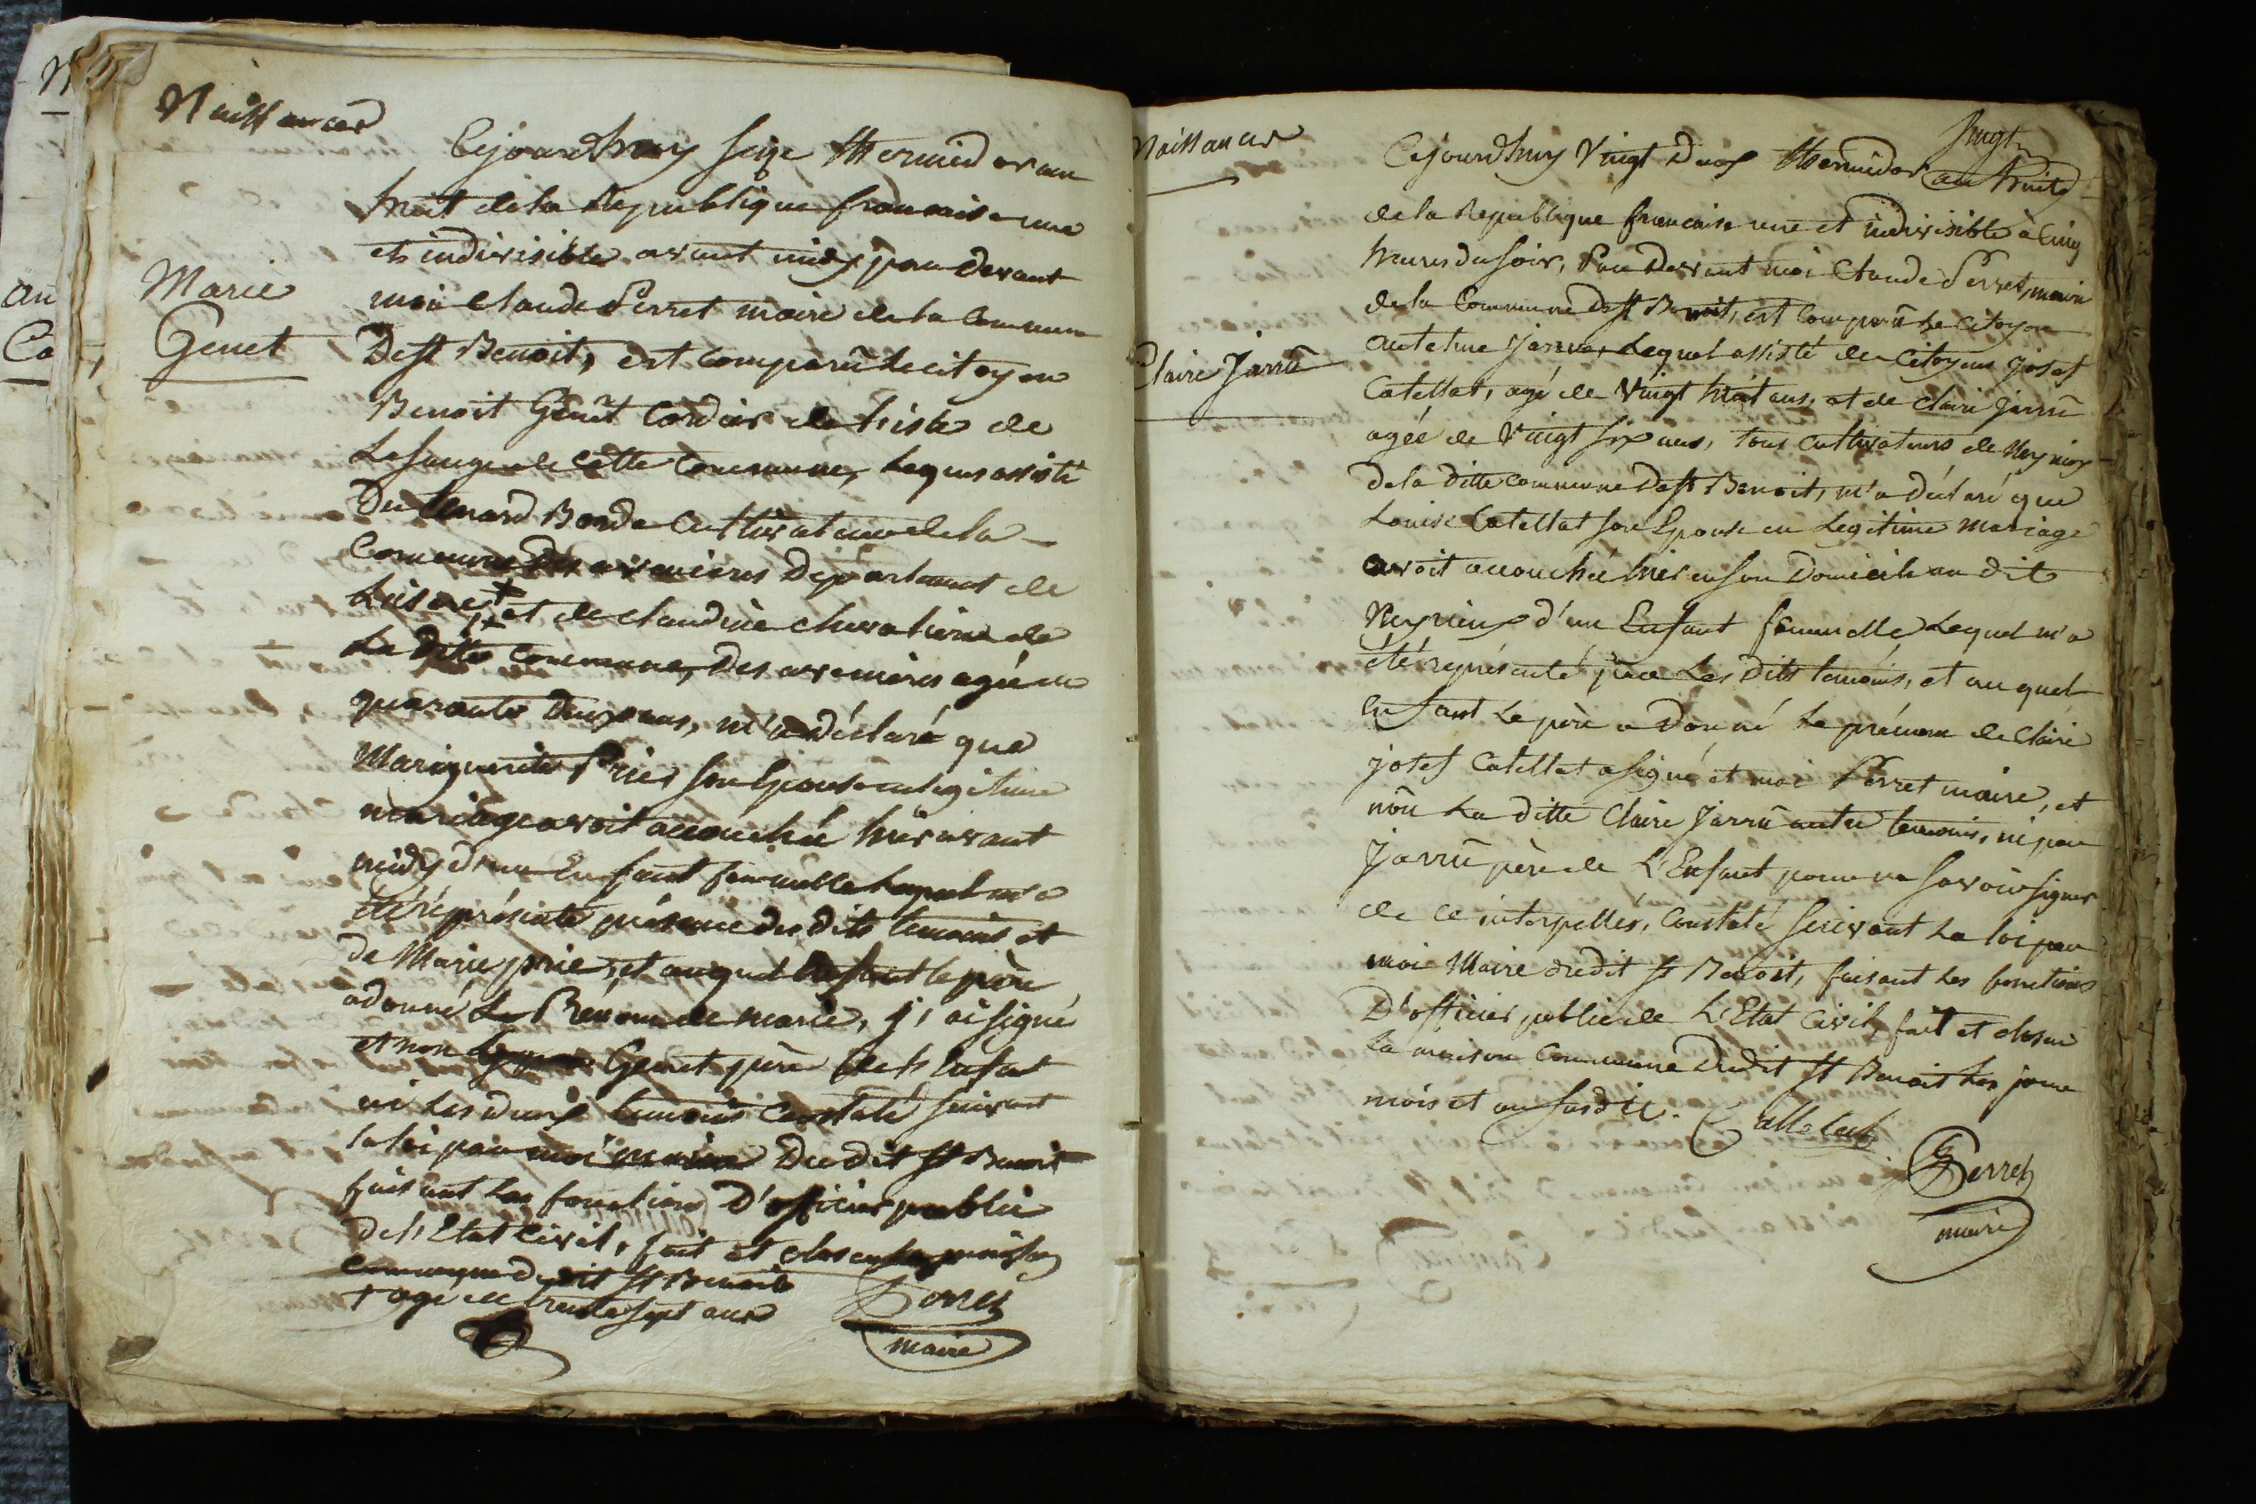 Naissances
Cejourdhuy seize thermidor an
huit de la Republique francaise une
et indivisible avant midy par devant
Marie
moi Claude Perret maire de la Commune
Genet
De st Benoit, est comparû le citoyen
Benoit Genêt Cordier de
de cette Commune, Lequel assisté
De Bonde Cultivateur de la
Commune des avenieres Département de
Lisere, + et de claudine chevaliere de
La ditte Commune, des avenieres agée de
quarante deux ans, m'a déclaré que
Marguerite Prier son Epouse en legitime
mariage avoit accouchée hier avant
midy d'un Enfant femelle Lequel m'a
été réprésenté présence des dits temoins et
de Marie prie, et auquel Enfant le père
a donné Le Prénom de marie, j'ai signé
et non Genet père de L'Enfant
ni Les deux temoins Constaté suivant
la loi par moi maire Dudit St Benoit
faisant Les fonctions D'officier public
de L'Etat Civil, fait et clos en la maison
Commune dudit St Benoit
+ agé de trente sept ans
Perret
maire
an
Co
Vingt
Naissances
Cejourdhuy Vingt Deux thermidor an huite
de la Republique francaise une et indivisible à Cinq
heures du soir, Par Devant moi Claude Perret, maire
de la Commune De st Benoit, est Comparû Le Citoyen
Claire Jarrû
antelme Jarru, Lequel assisté des Citoyens Josef
Catellat, agé de Vingt huit ans, et de Claire Jarrû
agée de Vingt six ans, tous Cultivateurs de Neyrieux
de la ditte Commune De St Benoit, m'a déclaré que
Louise Catellat son Epouse en Legitime Mariage
avoit accouchée hier en son Domicile au dit
Neyrieux d'un Enfant femelle Lequel m'a
été réprésenté par Les dits temoins, et auquel
Enfant Le père a Donné Le prénom de Claire
josef Catellat a signé et moi Perret maire, et
non La ditte Claire Jarrû autre temoins, ni par
Jarrû père de L'Enfant pour ne savoir signer
de ce interpellés, Constaté suivant La loi par
moi Maire dudit St Benoit, faisant Les fonctions
D'officier public de L'Etat Civil, fait et clos en
la maison Commune Dudit St Benoit Les jour
mois et an susdit. Catelat
Perret
maire